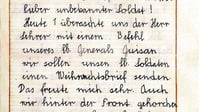 Lieber unbekannter Soldat!
Heute überraschte uns der Herr
Lehrer mit einem Befehl
unseres lb. Generals Guisan
wir sollen unsern lb. Soldaten
einen Weihnachtsbrief senden.
Das freute mich sehr. Auch
wir hinter der Front gehorchen